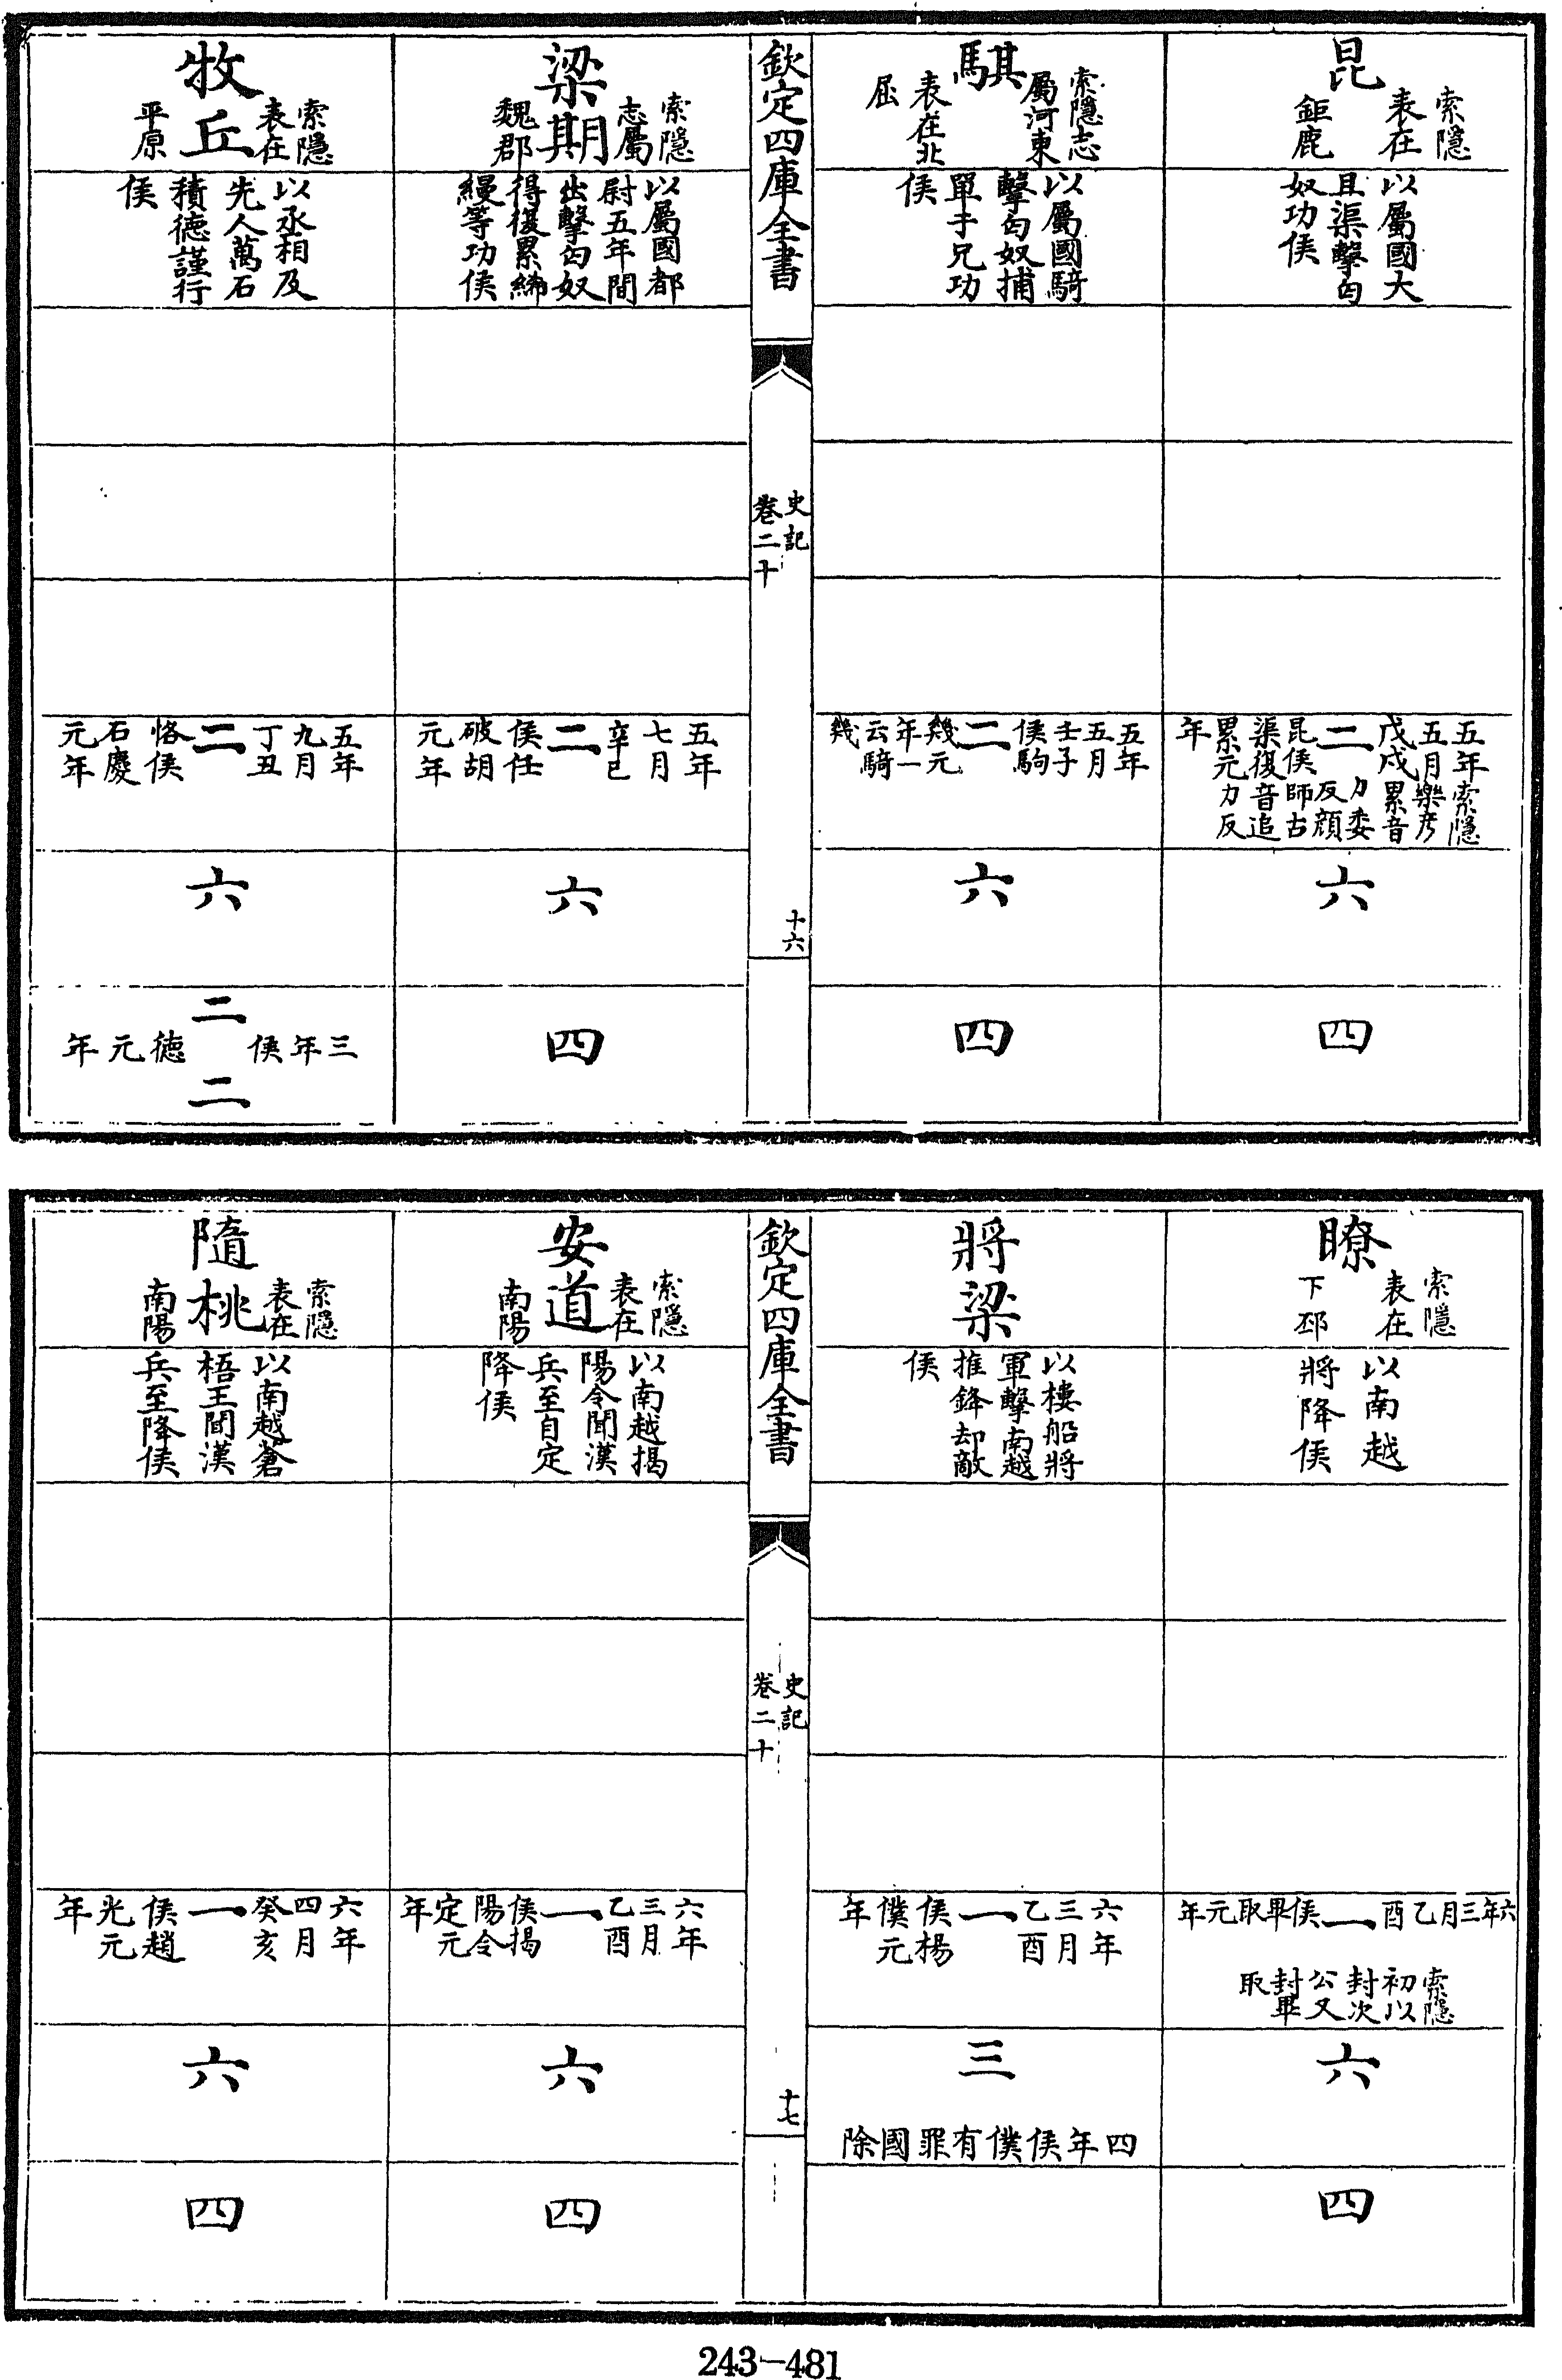 昆
索隱
表在
鉅鹿
以屬國大
且渠擊匈
奴功侯
五年
五月
戊戌
索隱
樂彦
累音
力委
反顔
師古
音追
力反
二
昆侯
渠復
累元
年
六
四
騏
索隱志
屬河東
表在北
屈
以屬國騎
擊匈奴捕
單于兄功
侯
五年
五月
壬子
侯駒
二
幾元
年一
云騎
幾
六
四
欽定四庫全書
史記
卷二十
十六
梁期
索隱
志屬
魏郡
以屬國都
尉五年間
出擊匈奴
得復累絺
縵等功侯
五年
七月
辛巳
二
侯任
破胡
元年
六
四
牧丘
索隱
表在
平原
以丞相及
先人萬石
積德謹行
侯
五年
九月
丁丑
二
恪侯
石慶
元年
六
二
三年侯
德元年
二
瞭
索隱
表在
下邳
以南越
將降侯
六年三月乙酉
一
侯畢取元年
索隱
初以
封次
公又
封畢
取
六
四
將梁
以樓船將
軍擊南越
推鋒却敵
侯
六年
三月
乙酉
一
侯楊
僕元
年
三
四年侯僕有罪國除
欽定四庫全書
史記
卷二十
十七
安道
索隱
表在
南陽
以南越揭
陽令聞漢
兵至自定
降侯
六年
三月
乙酉
一
侯揭
陽令
定元
年
六
四
隨桃
索隱
表在
南陽
以南越蒼
梧王聞漢
兵至降侯
六年
四月
癸亥
一
侯趙
光元
年
六
四
243-481